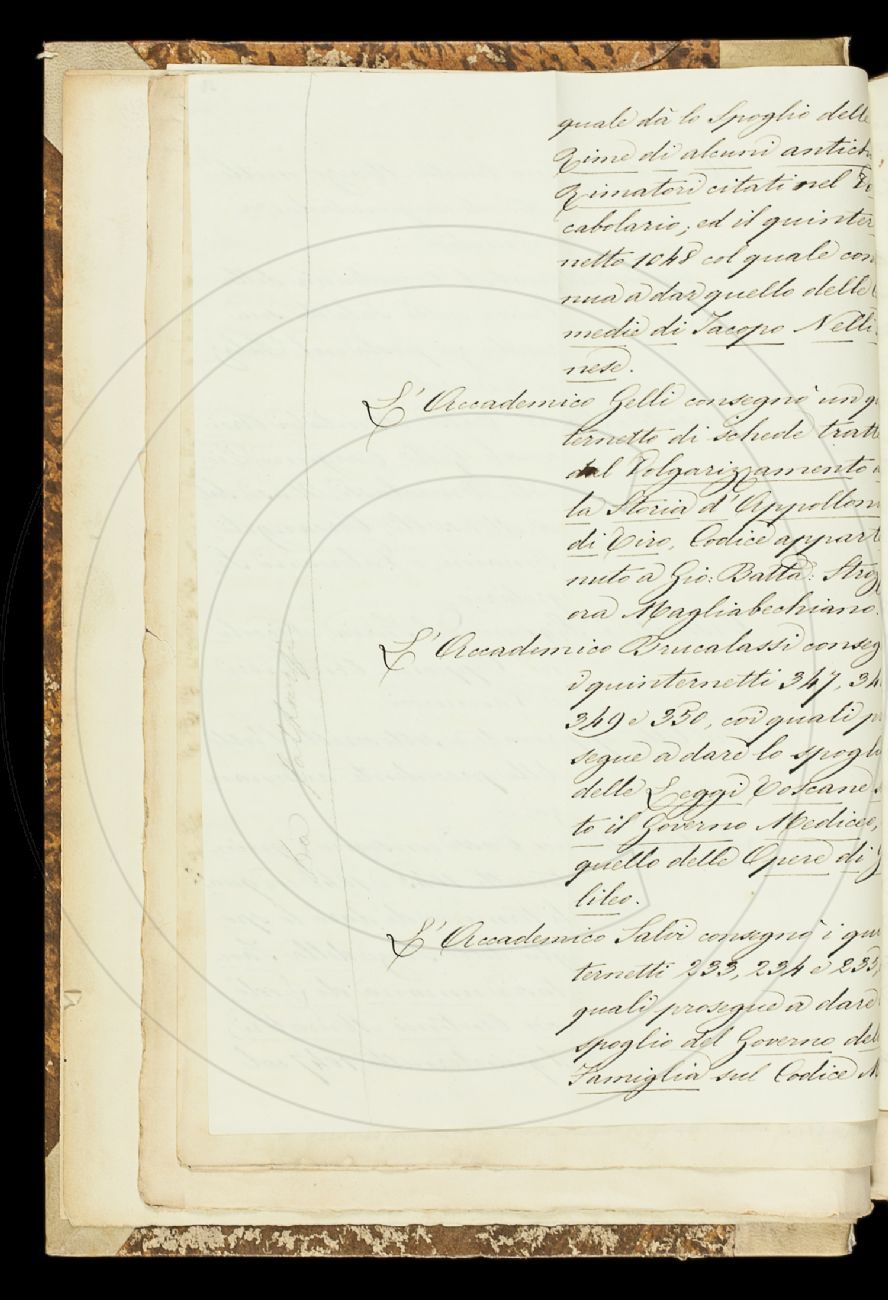 quale dà lo Spoglio delle
Rime di alcuni antichi
Rimatori citati nel Vo
cabolario; ed il quinter
netto 1048 col quale con
nua a dar quello delle
medie di Jacopo Nelli
nese.
L'Accademico Gelli consegnò un qu
ternetto di schede tratte
dal Volgarizzamento
la Storia d'Appolloni
di Tiro, Codice apparte
nuto a Gio: Batta: Stroz
ora Magliabechiano.
L'Accademico Brucalassi conseg
i quinternetti 347, 34
349 e 350, coi quali pr
segue a dare lo spoglio
delle Leggi Toscane s
to il Governo Mediceo,
quello delle Opere di G
lileo.
L'Accademico Salvi consegnò i qui
ternetti 233, 234 e 235,
quali prosegue a dare
spoglio del Governo del
Famiglia sul Codice M